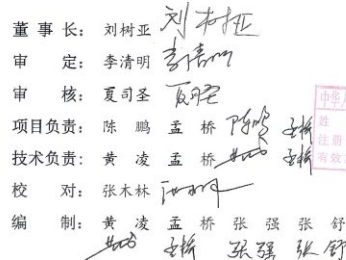 董 事 长： 刘树亚 刘树亚
审 定： 李清明 李清明
审 核： 夏司圣 夏司圣
项目负责： 陈 鹏 孟 桥 陈鹏 孟桥
技术负责： 黄 凌 孟 桥 黄凌 孟桥
校 对： 张木林 张木林
编 制： 黄 凌 孟 桥 张 强 张 舒
黄凌 孟桥 张强 张舒
中华人
姓
注册
有效